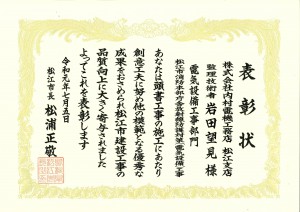 表彰状
株式会社内村電機工務店 松江支店
監理技術者 岩田望見 様
電気設備工事部門
松江市消防本部庁舎放射線防護対策電気設備工事
あなたは頭書工事の施工にあたり
創意工夫に努め他の模範となる優秀な
成果をおさめられ松江市建設工事の
品質向上に大きく寄与されました
よってこれを表彰します
令和元年七月五日
松江市長 松浦正敬